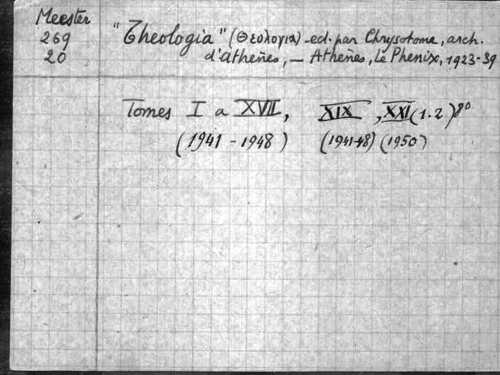 Meester
269
20
"Theologia" (Θεολογια) - ed. par Chrysotome, arch.
d'athenes, - Athènes, Le Phenix, 1923-39
Tomes I a XVII, XIX, XXI (1.2) 8°
(1941 - 1948) (1941-48) (1950)